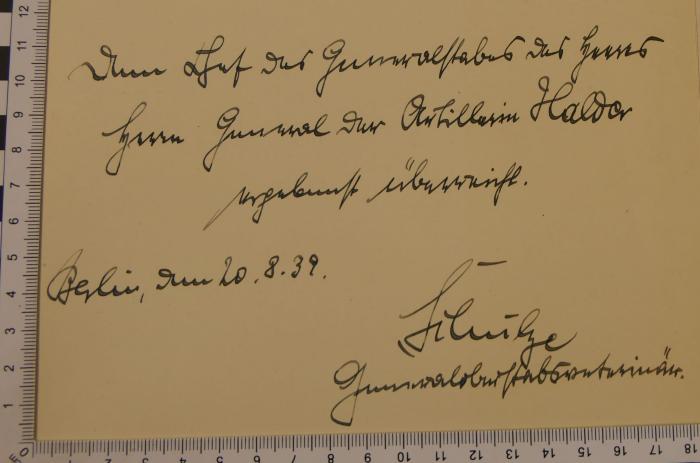 Dem Chef des Generalstabes des Heeres
Herrn General der Artillerie Halder
ergebenst überreicht.
Berlin, den 20.8.39.
Schulze
Generaloberstabsveterinär.
12
11
10
9
8
7
6
5
4
3
2
1
0
cm
1 2 3 4 5 6 7 8 9 10 11 12 13 14 15 16 17 18